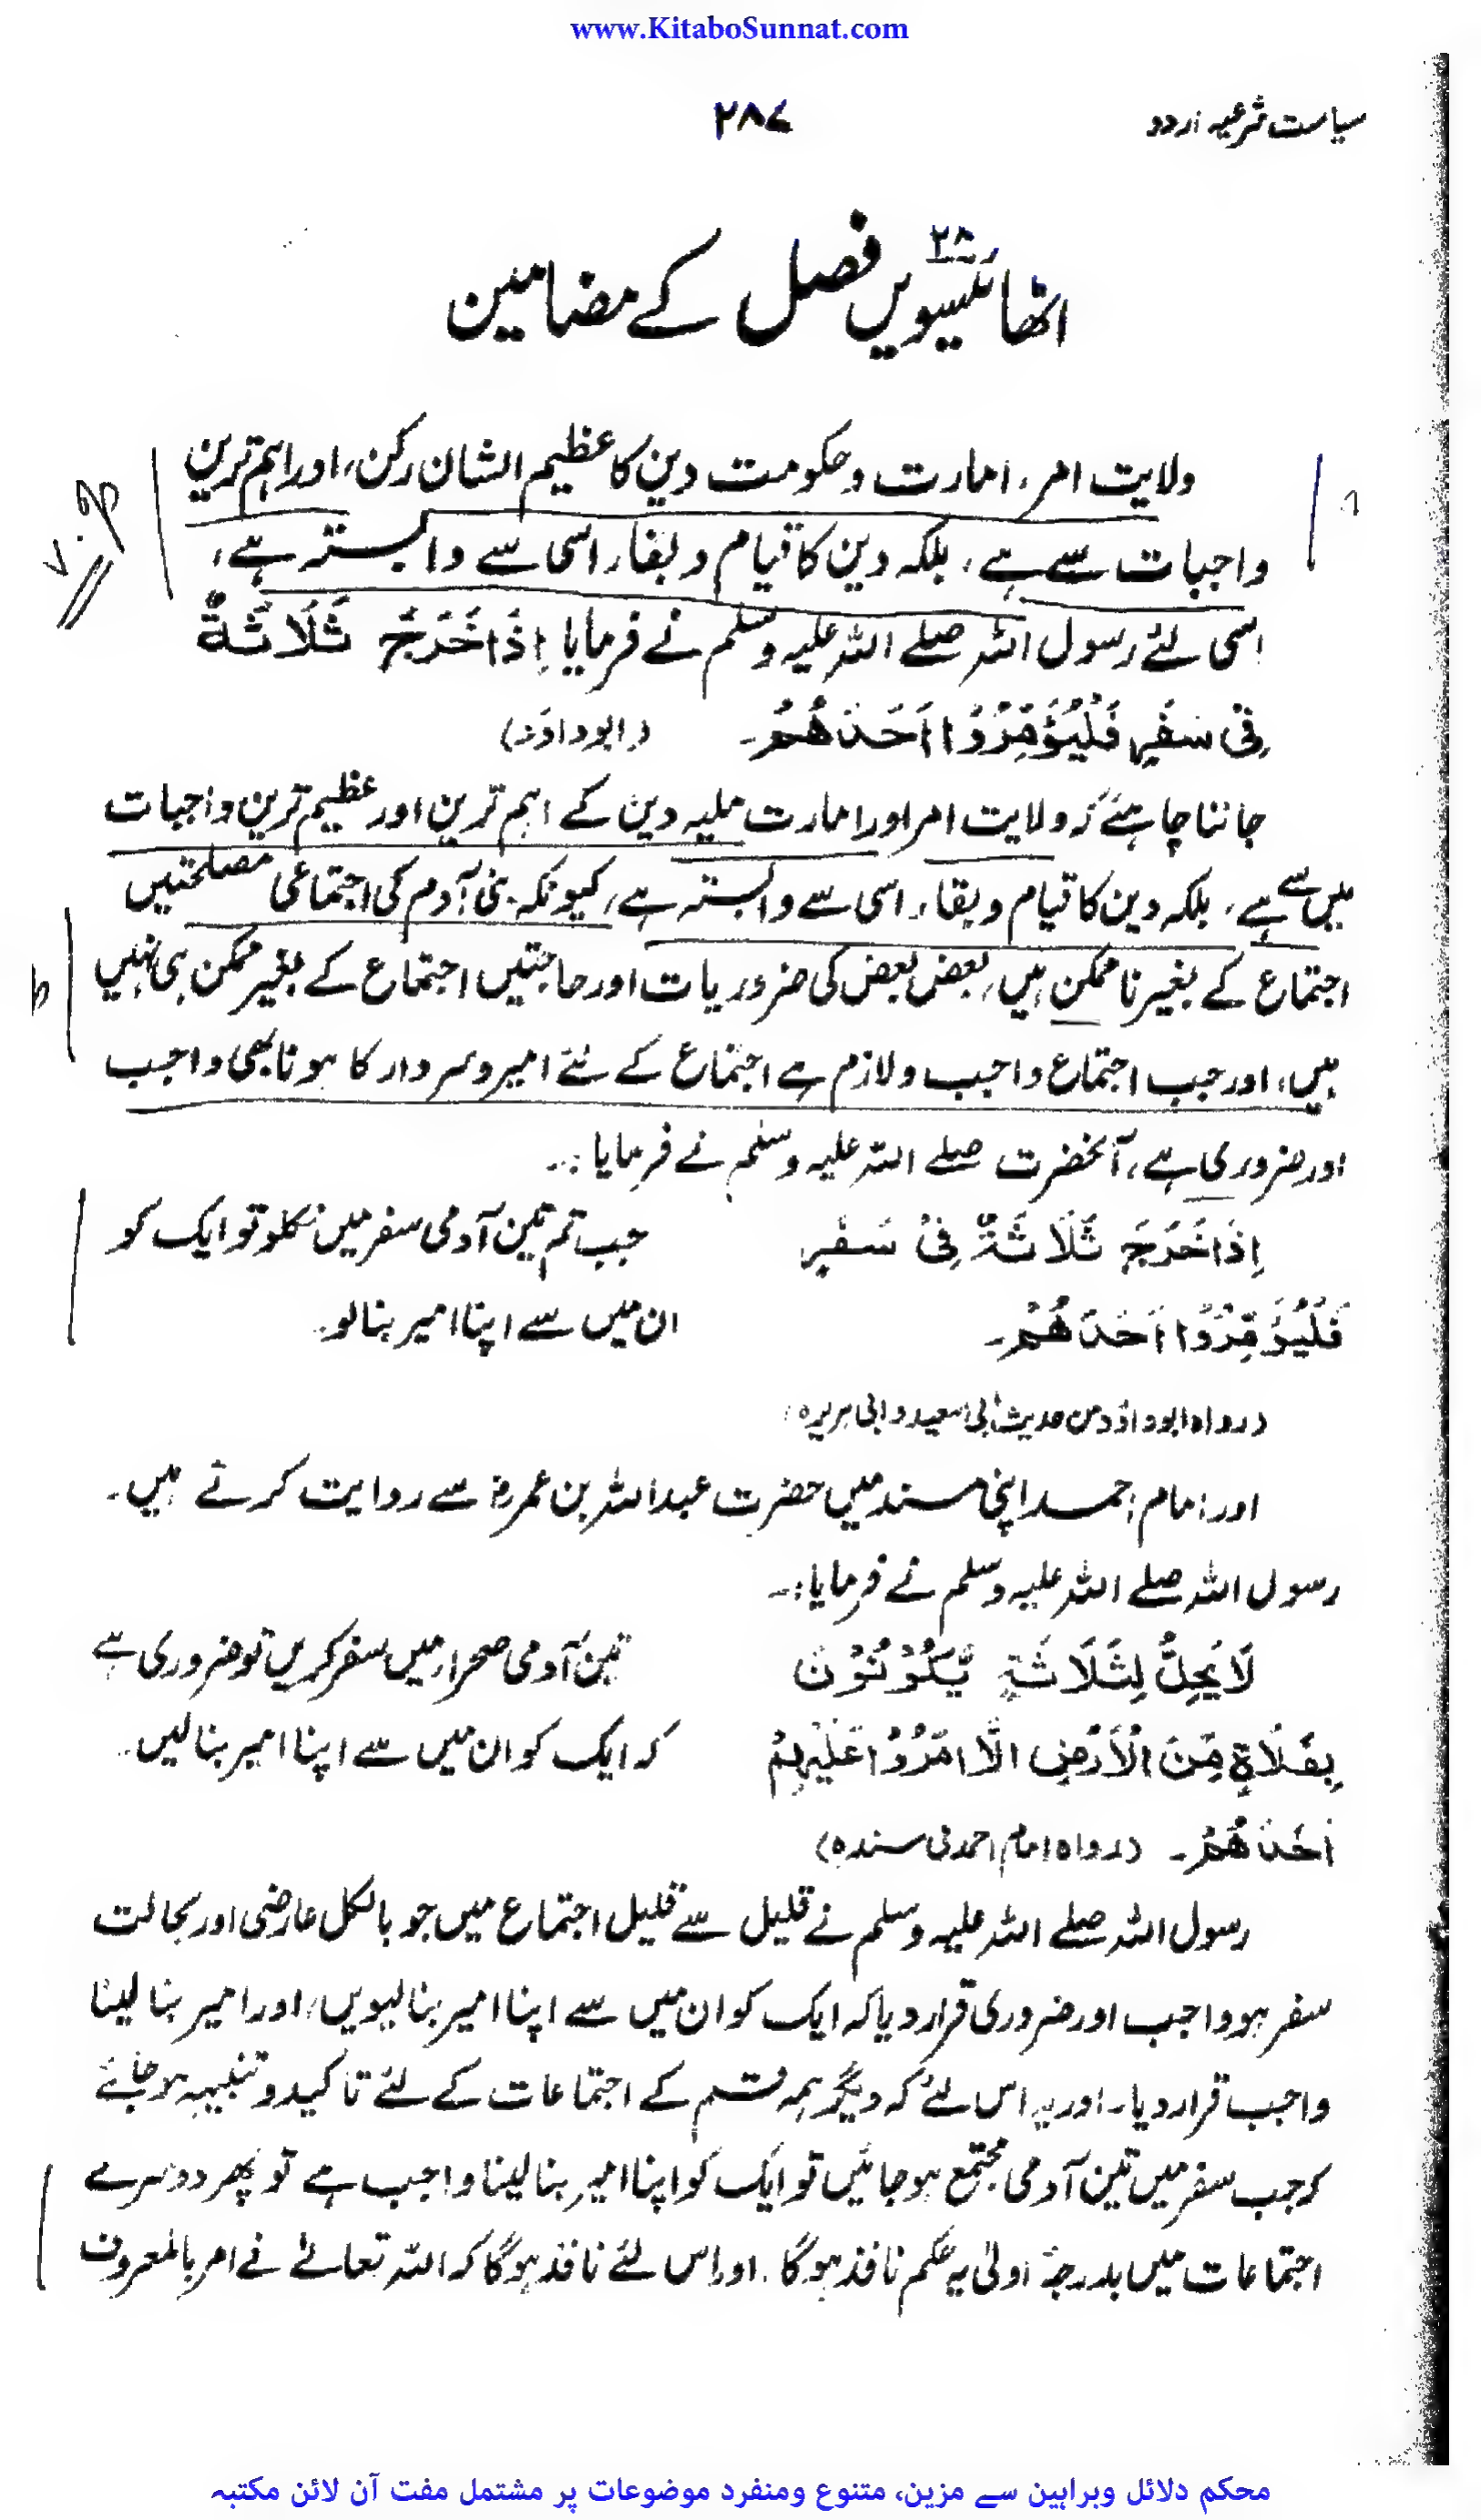 www.KitaboSunnat.com
سیاست شرعیہ اردو
۲۸۷
۲۸
اٹھائیسویں فصل کے مضامین
ولایت امر، امارت و حکومت دین کا عظیم الشان رکن، اور اہم ترین
واجبات سے ہے، بلکہ دین کا قیام و بقاء اسی سے وابستہ ہے،
اسی لئے رسول اللہ صلے اللہ علیہ وسلم نے فرمایا اِذَا خَرَجَ ثَلَاثَةٌ
فِیْ سَفَرٍ فَلْیُؤَمِّرُوْا اَحَدَهُمْ۔ (ابو داؤد)
جاننا چاہئے کہ ولایت امر اور امارت ملیہ دین کے اہم ترین اور عظیم ترین واجبات
میں سے ہے، بلکہ دین کا قیام و بقاء اسی سے وابستہ ہے، کیونکہ بنی آدم کی اجتماعی مصلحتیں
اجتماع کے بغیر ناممکن ہیں، بعض بعض کی ضروریات اور حاجتیں اجتماع کے بغیر ممکن ہی نہیں
ہیں، اور جب اجتماع واجب و لازم ہے اجتماع کے لئے امیر و سردار کا ہونا بھی واجب
اور ضروری ہے، آنحضرت صلے اللہ علیہ وسلم نے فرمایا:۔
اِذَا خَرَجَ ثَلَاثَةٌ فِیْ سَفَرٍ جب تم تین آدمی سفر میں نکلو تو ایک کو
فَلْیُؤَمِّرُوْا اَحَدَهُمْ۔ ان میں سے اپنا امیر بنا لو۔
(رواہ ابو داؤد من حدیث ابی سعید و ابی ہریرہ)
اور امام احمد اپنی مسند میں حضرت عبد اللہ بن عمرؓ سے روایت کرتے ہیں۔
رسول اللہ صلے اللہ علیہ وسلم نے فرمایا:۔
لَا یَحِلُّ لِثَلَاثَةٍ یَّکُوْنُوْنَ تین آدمی صحراء میں سفر کریں تو ضروری ہے
بِفَلَاةٍ مِّنَ الْاَرْضِ اِلَّا اَمَّرُوْا عَلَیْهِمْ کہ ایک کو ان میں سے اپنا امیر بنا لیں۔
اَحَدَهُمْ۔ (رواہ امام احمد فی مسندہ)
رسول اللہ صلے اللہ علیہ وسلم نے قلیل سے قلیل اجتماع میں جو بالکل عارضی اور بحالت
سفر ہو واجب اور ضروری قرار دیا کہ ایک کو ان میں سے اپنا امیر بنا لیویں، اور امیر بنا لینا
واجب قرار دیا۔ اور یہ اس لئے کہ دیگر ہمہ قسم کے اجتماعات کے لئے تاکید و تنبیہہ ہو جائے
کہ جب سفر میں تین آدمی مجتمع ہو جائیں تو ایک کو اپنا امیر بنا لینا واجب ہے تو پھر دوسرے
اجتماعات میں بدرجۂ اولیٰ یہ حکم نافذ ہو گا۔ اور اس لئے نافذ ہو گا کہ اللہ تعالےٰ نے امر بالمعروف
محکم دلائل وبراہین سے مزین، متنوع ومنفرد موضوعات پر مشتمل مفت آن لائن مکتبہ